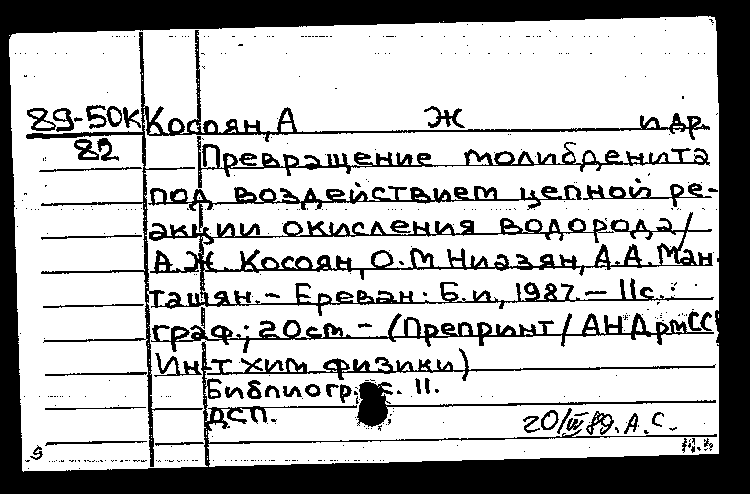 89-50К Косоян, А Ж и др.
82 Превращение молибденита
под воздействием цепной ре-
акции окисления водорода/
А.Ж. Косоян, О.М Ниазян, А.А. Ман-
ташян. - Ереван: Б.и., 1987. - 11с.:
граф.; 20см. - (Препринт / АН АрмССР
Ин-т хим физики)
Библиогр.: с. 11.
ДСП.
20/III 89. А.С.